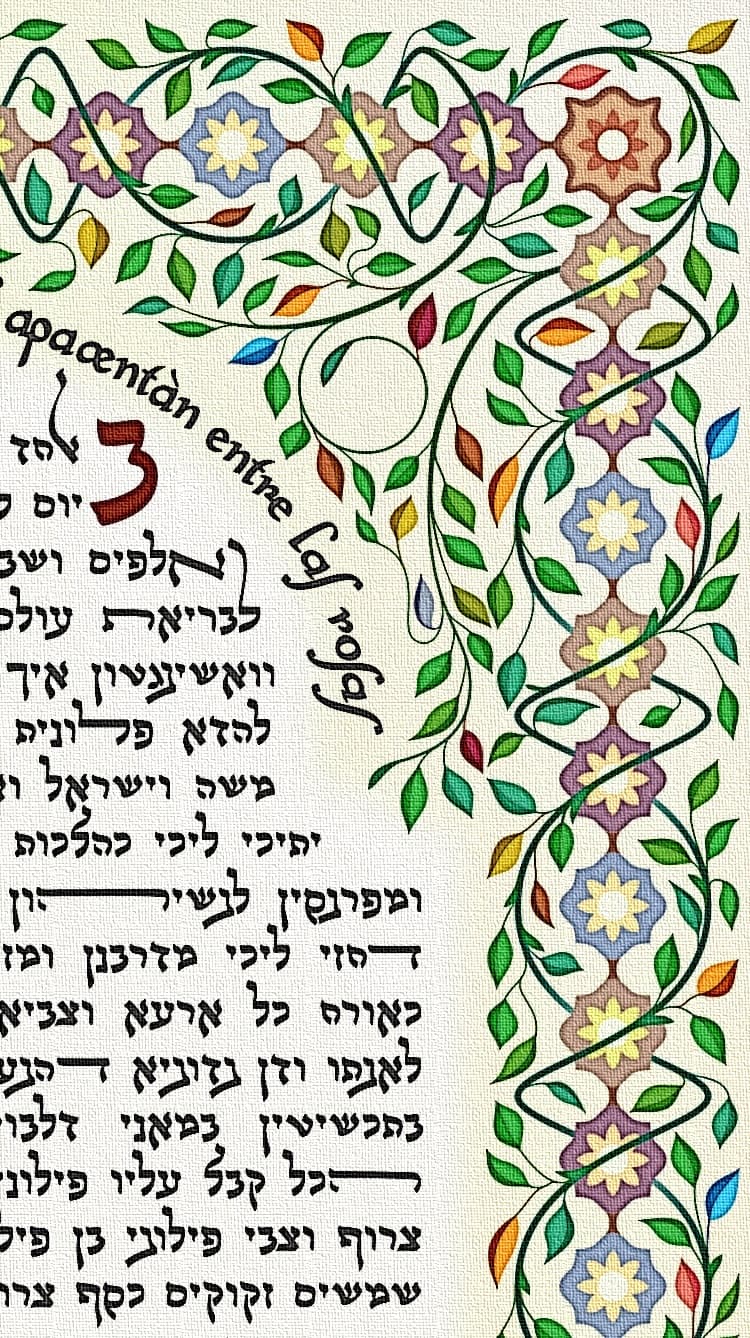 apacentàn entre las rosas
באחד
יום ל
אלפים ושב
לבריאת עולם
וואשינגטון איך
להדא פלונית
משה וישראל
יתיכי ליכי כהלכות
ומפרנסין לנשיהון
דחזי ליכי מדרבנן ומז
כאורח כל ארעא וצביא
לאנתו ודן נדוניא דהנע
בתכשיטין במאני דלבו
הכל קבל עליו פילונ
צרוף וצבי פילוני בן פיל
שמשים זקוקים כסף צרו